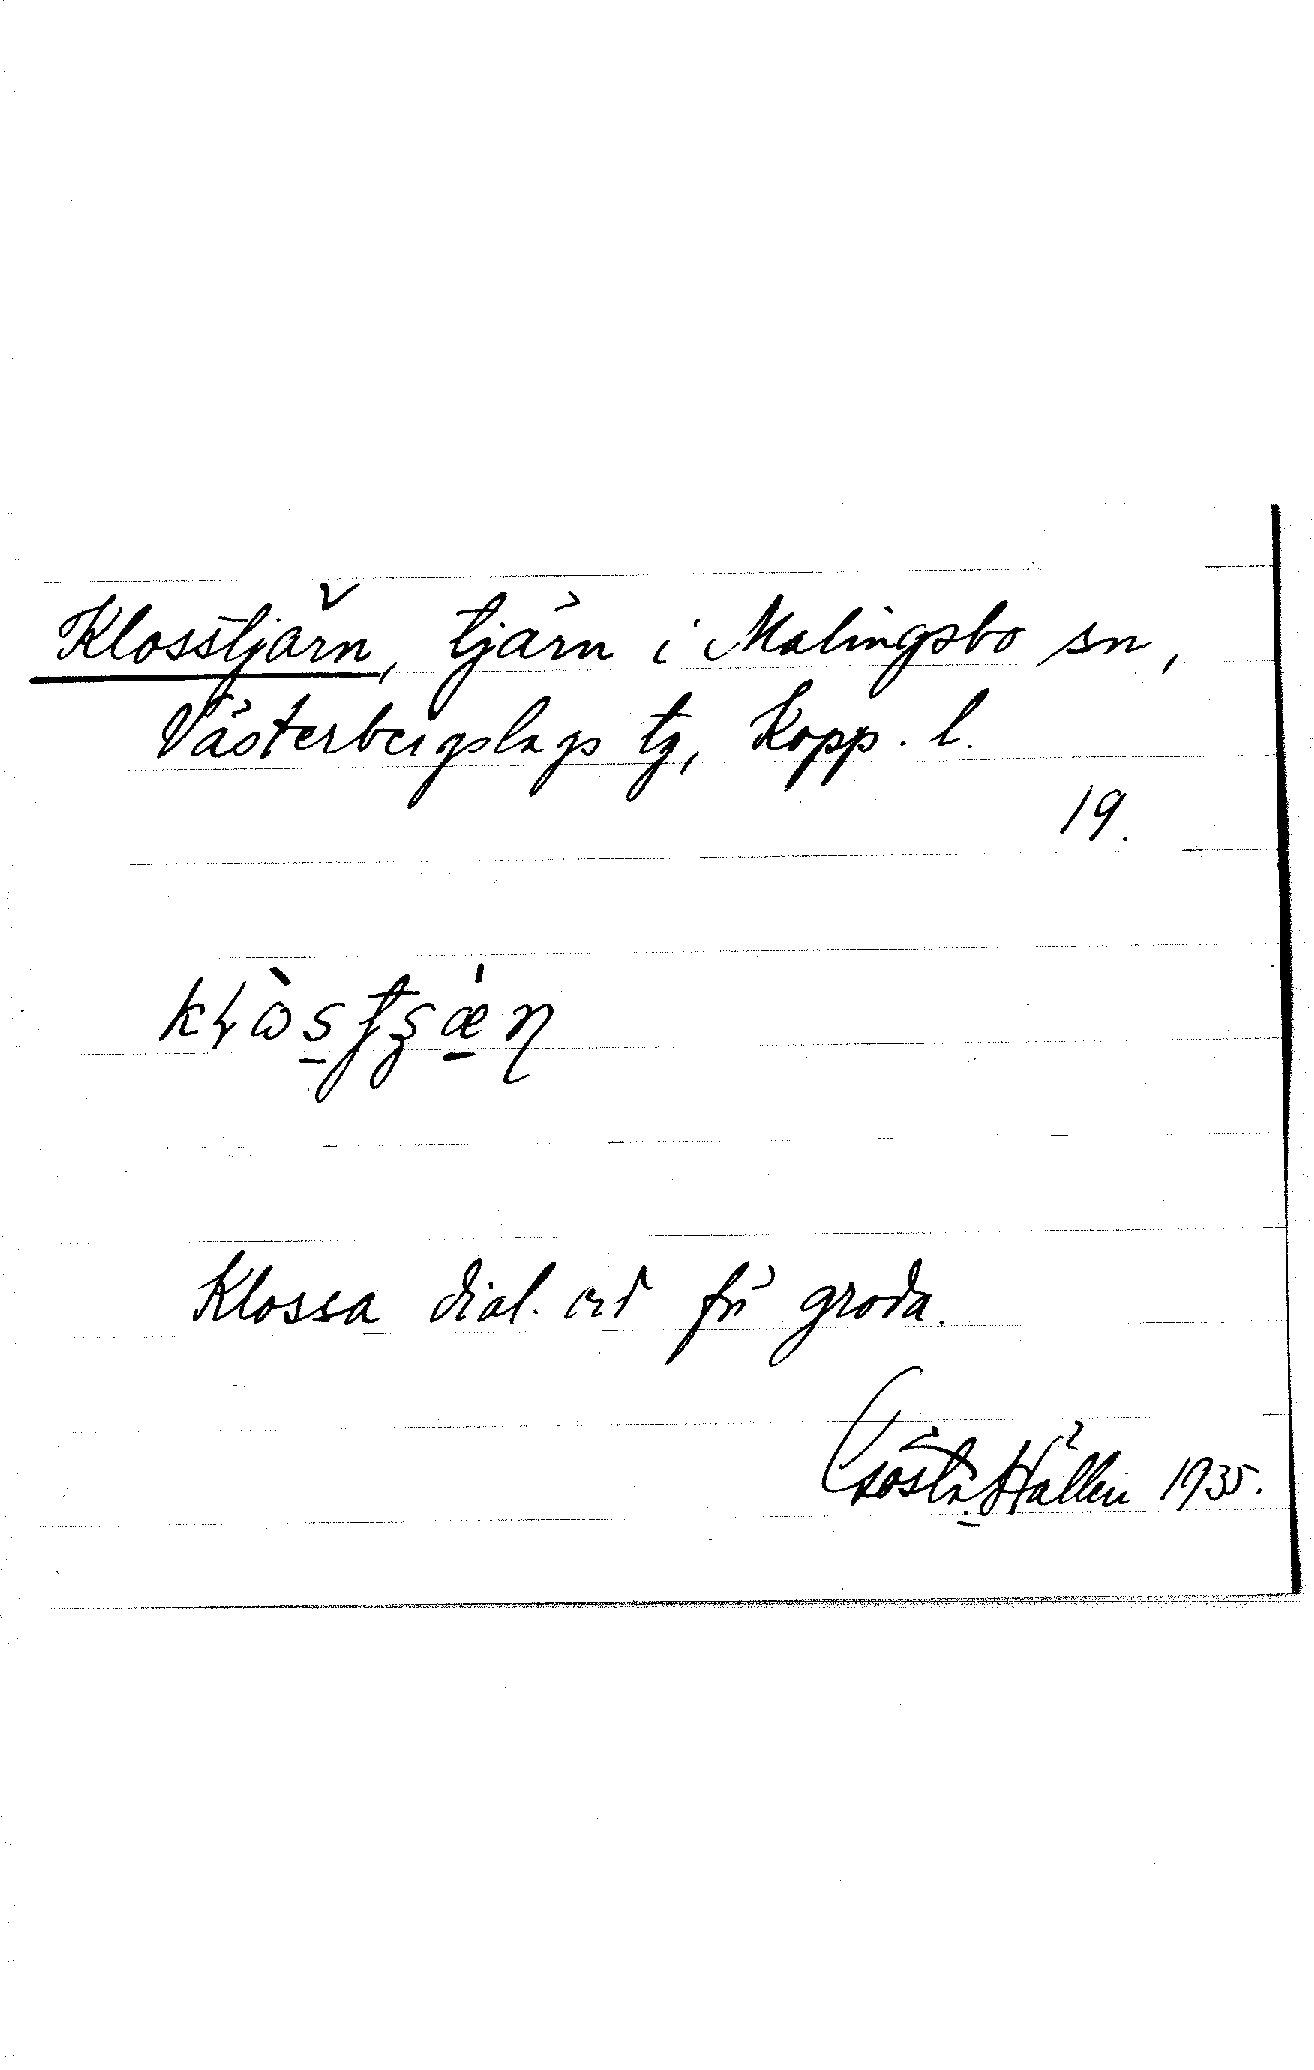 Klosstjärn, tjärn i Malingsbo sn,
Västerbergslags tg, Kopp. l.
19.
Klossa dial. ord för groda.
Gösta Hållen 1935.